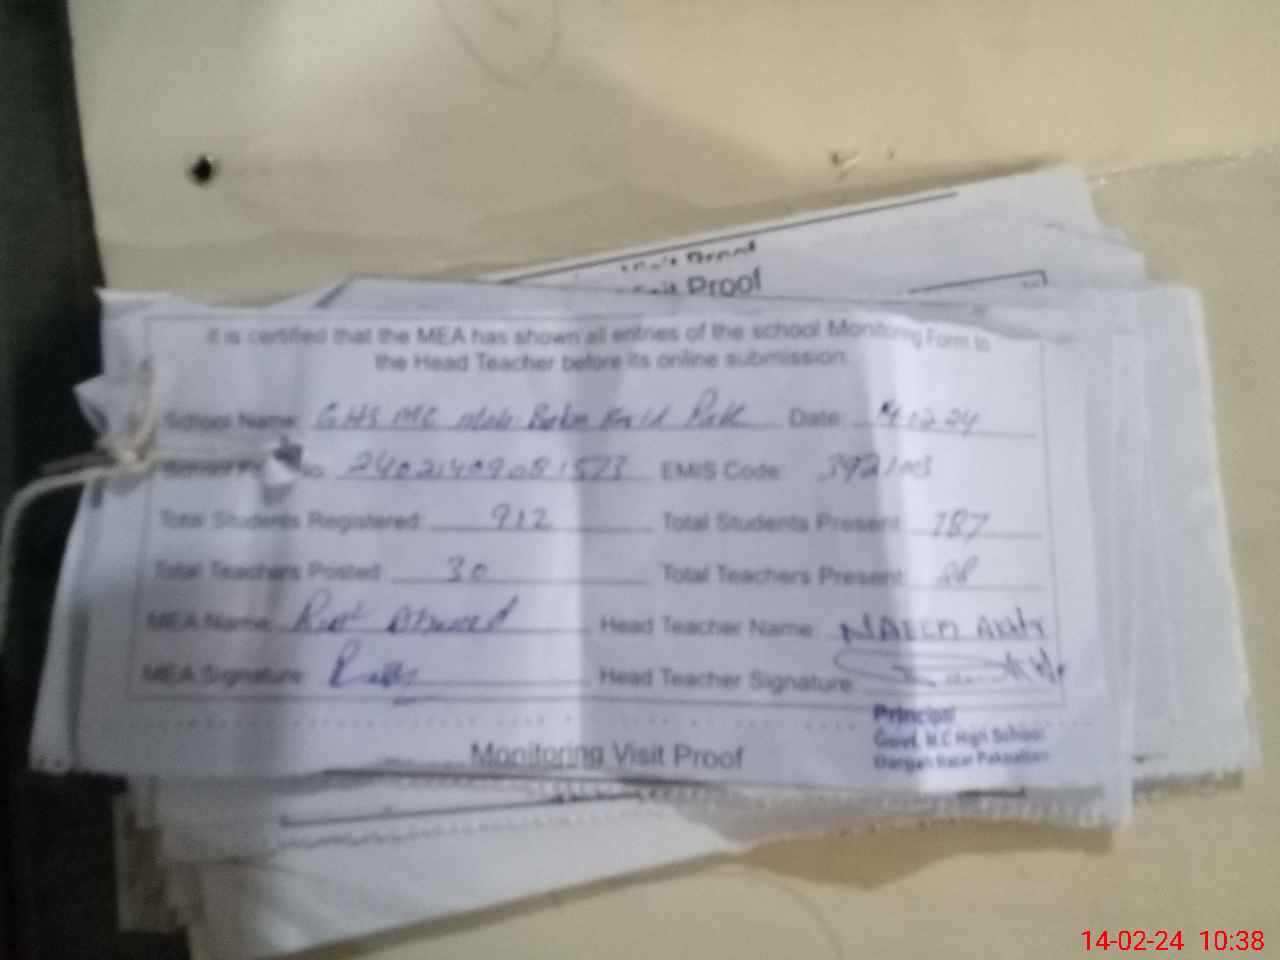 Visit Proof
Visit Proof
It is certified that the MEA has shown all entries of the school Monitoring Form to
the Head Teacher before its online submission.
School Name: GHS MC Baba Farid Date: 14.02.24
School No: 24021409081573 EMIS Code:
Total Students Registered: 912 Total Students Present: 787
Total Teachers Posted: 30 Total Teachers Present: 28
MEA Name: Head Teacher Name: NAEEM Akhtr
MEA Signature: Head Teacher Signature:
Principal
Govt. M.C High School
Monitoring Visit Proof
Bazar Pakpattan
14-02-24 10:38